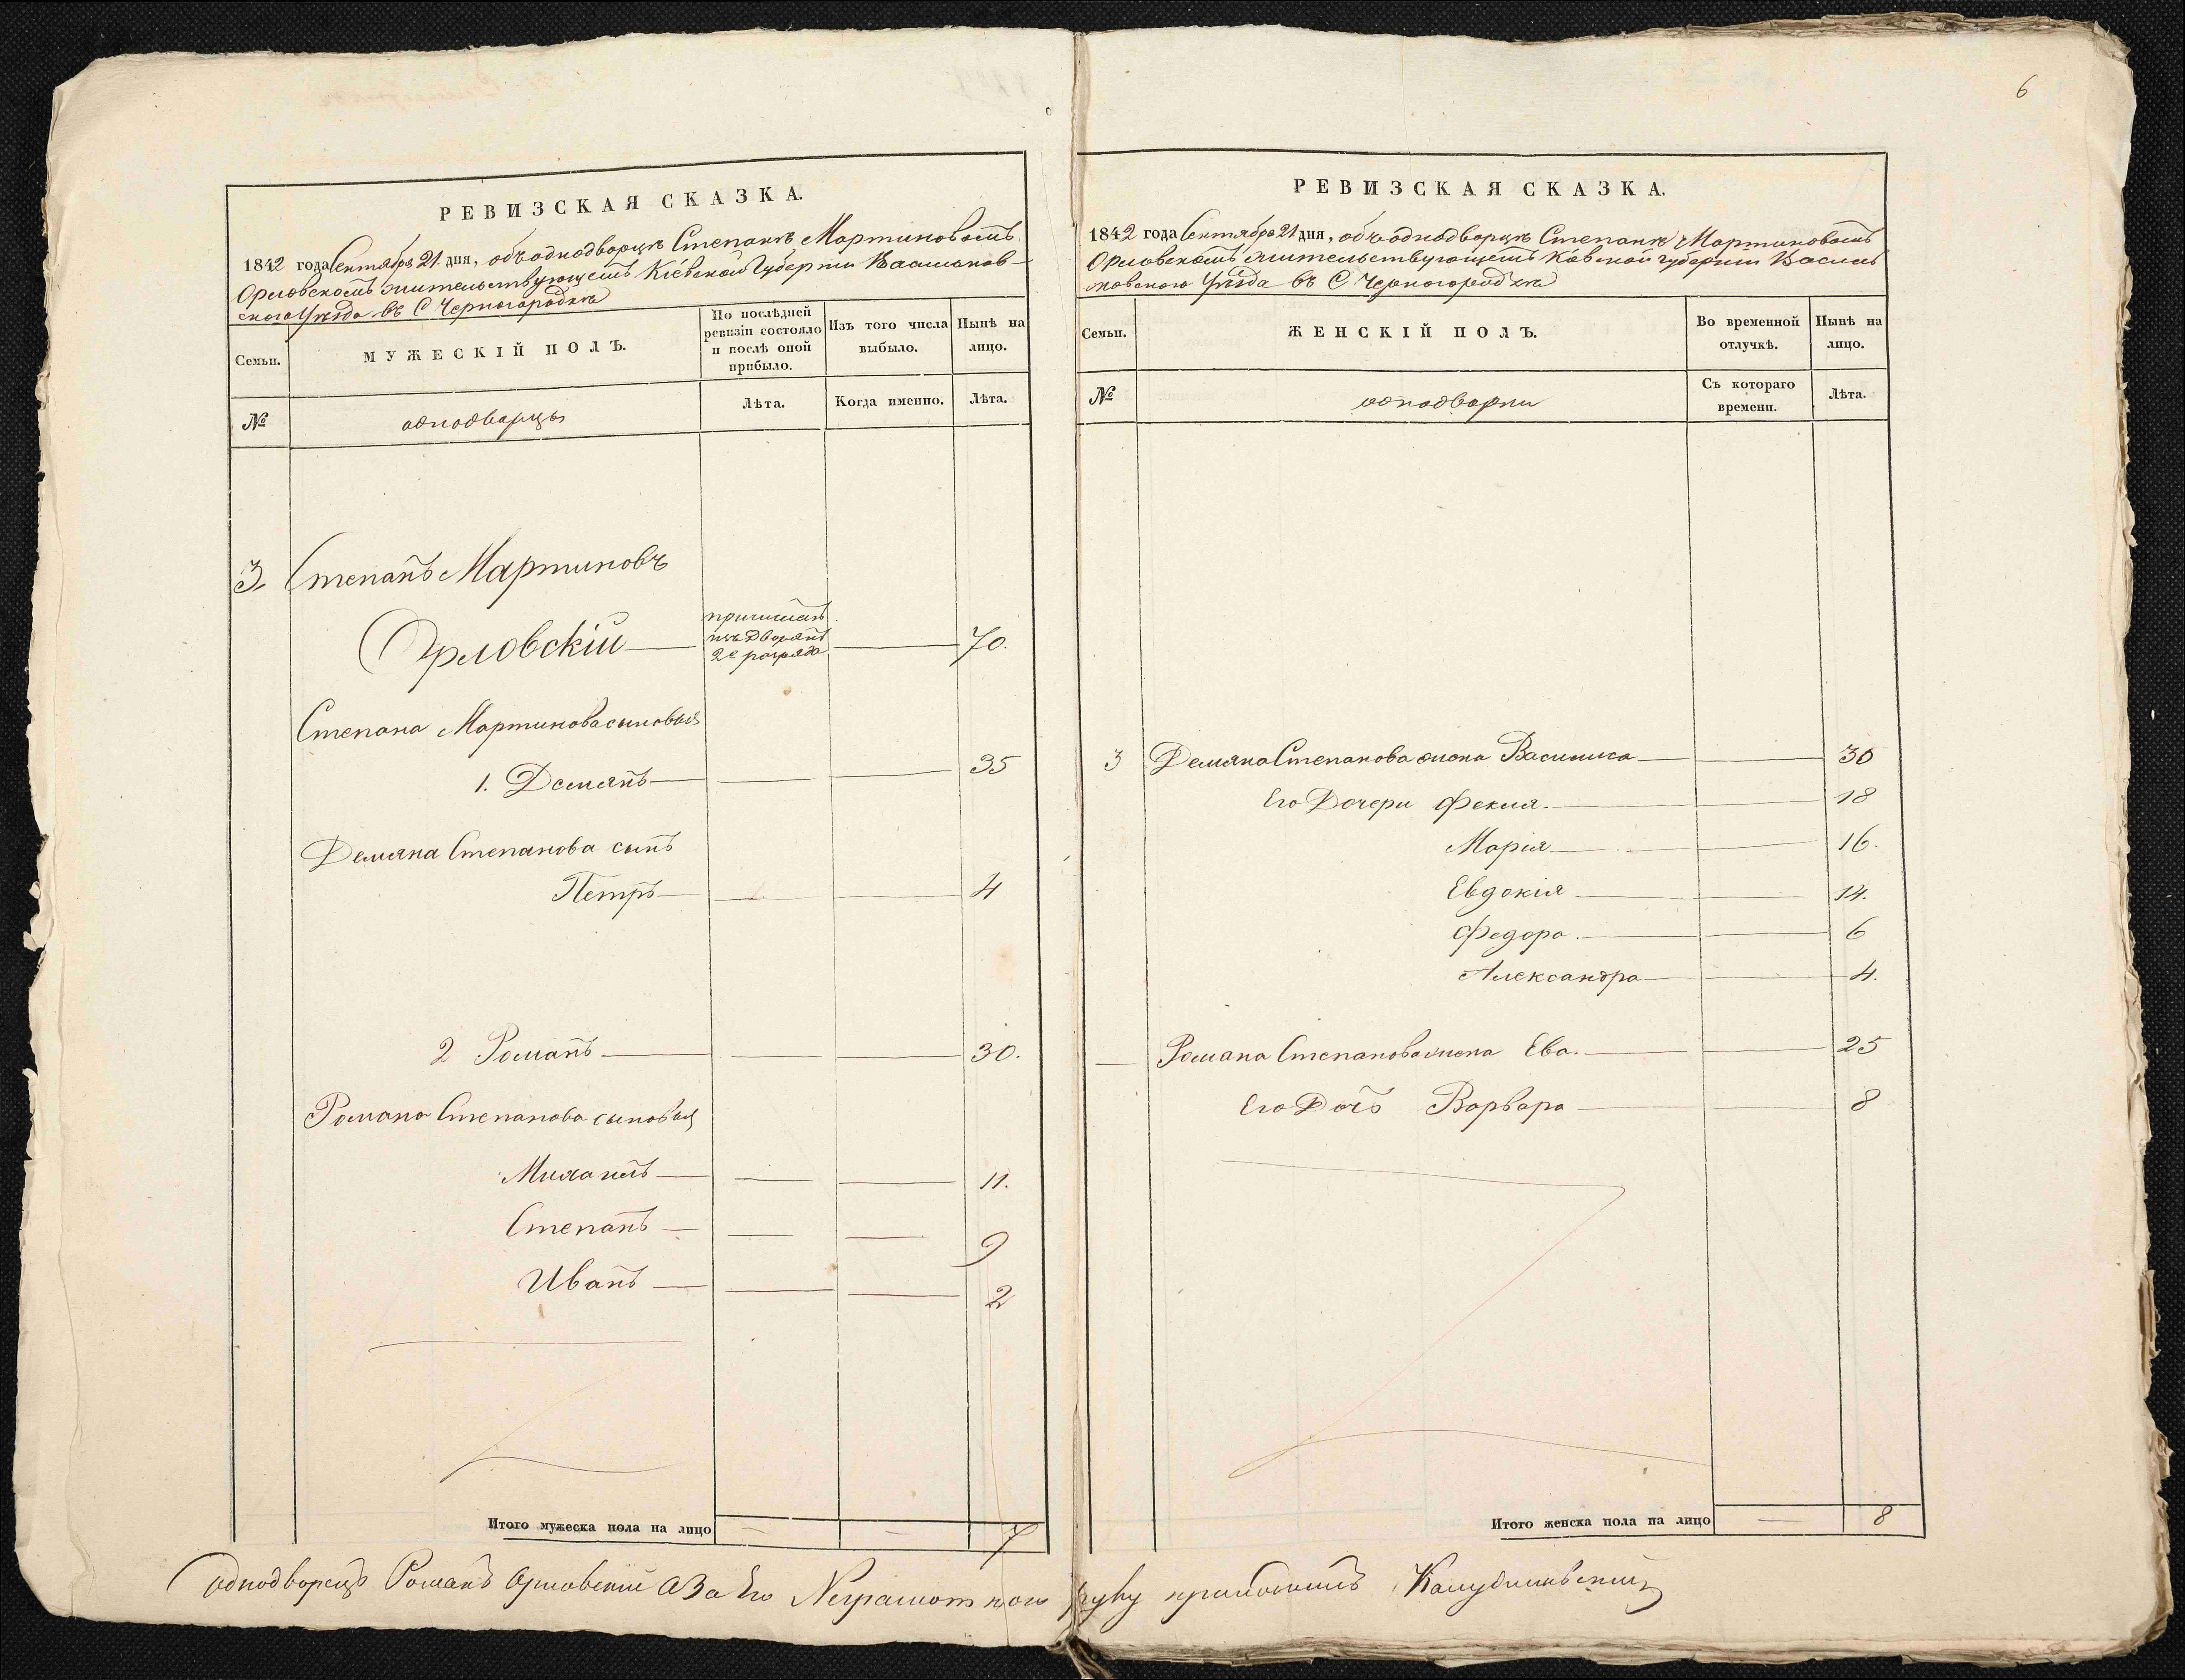 РЕВИЗСКАЯ СКАЗКА.
1842 года Сентября 21 дня, объ однодворцѣ Степанѣ Мартиновомъ
Орловскомъ жительствующемъ Кіевской Губерніи Васильков-
скаго Уѣзда въ С Черногородкѣ
Семьи.
МУЖЕСКІЙ ПОЛЪ.
По послѣдней ревизіи состояло и послѣ оной прибыло.
Изъ того числа выбыло.
Нынѣ на лицо.
№
однодворцы
Лѣта.
Когда именно.
Лѣта.
3. Степанъ Мартиновъ
Орловскій
причисленъ
изъ Дворянъ
2е разряда
70.
Степана Мартинова сыновья
1. Демянъ 35
Демяна Степанова сынъ
Петръ 4
2 Романъ 30.
Романа Степанова сыновья
Михаилъ 11.
Степанъ 9
Иванъ 2
Итого мужеска пола на лицо 7
6
РЕВИЗСКАЯ СКАЗКА.
1842 года Сентября 21 дня, объ однодворцѣ Степанѣ Мартиновомъ
Орловскомъ жительствующемъ Кіевской губерніи Василь
ковского Уѣзда въ С Черногородкѣ
Семьи.
ЖЕНСКІЙ ПОЛЪ.
Во временной отлучкѣ.
Нынѣ на лицо.
№
однодворки
Съ котораго времени.
Лѣта.
3 Демяна Степанова жена Василиса 30
Его Дочери Фекла. 18
Марія 16.
Евдокія 14.
Федора. 6
Александра 4.
Романа Степанова жена Ева. 25
Его Дочь Варвара 8
Итого женска пола на лицо 8
Однодворецъ Романъ Орловскій А За Его Неграмотного руку приложилъ